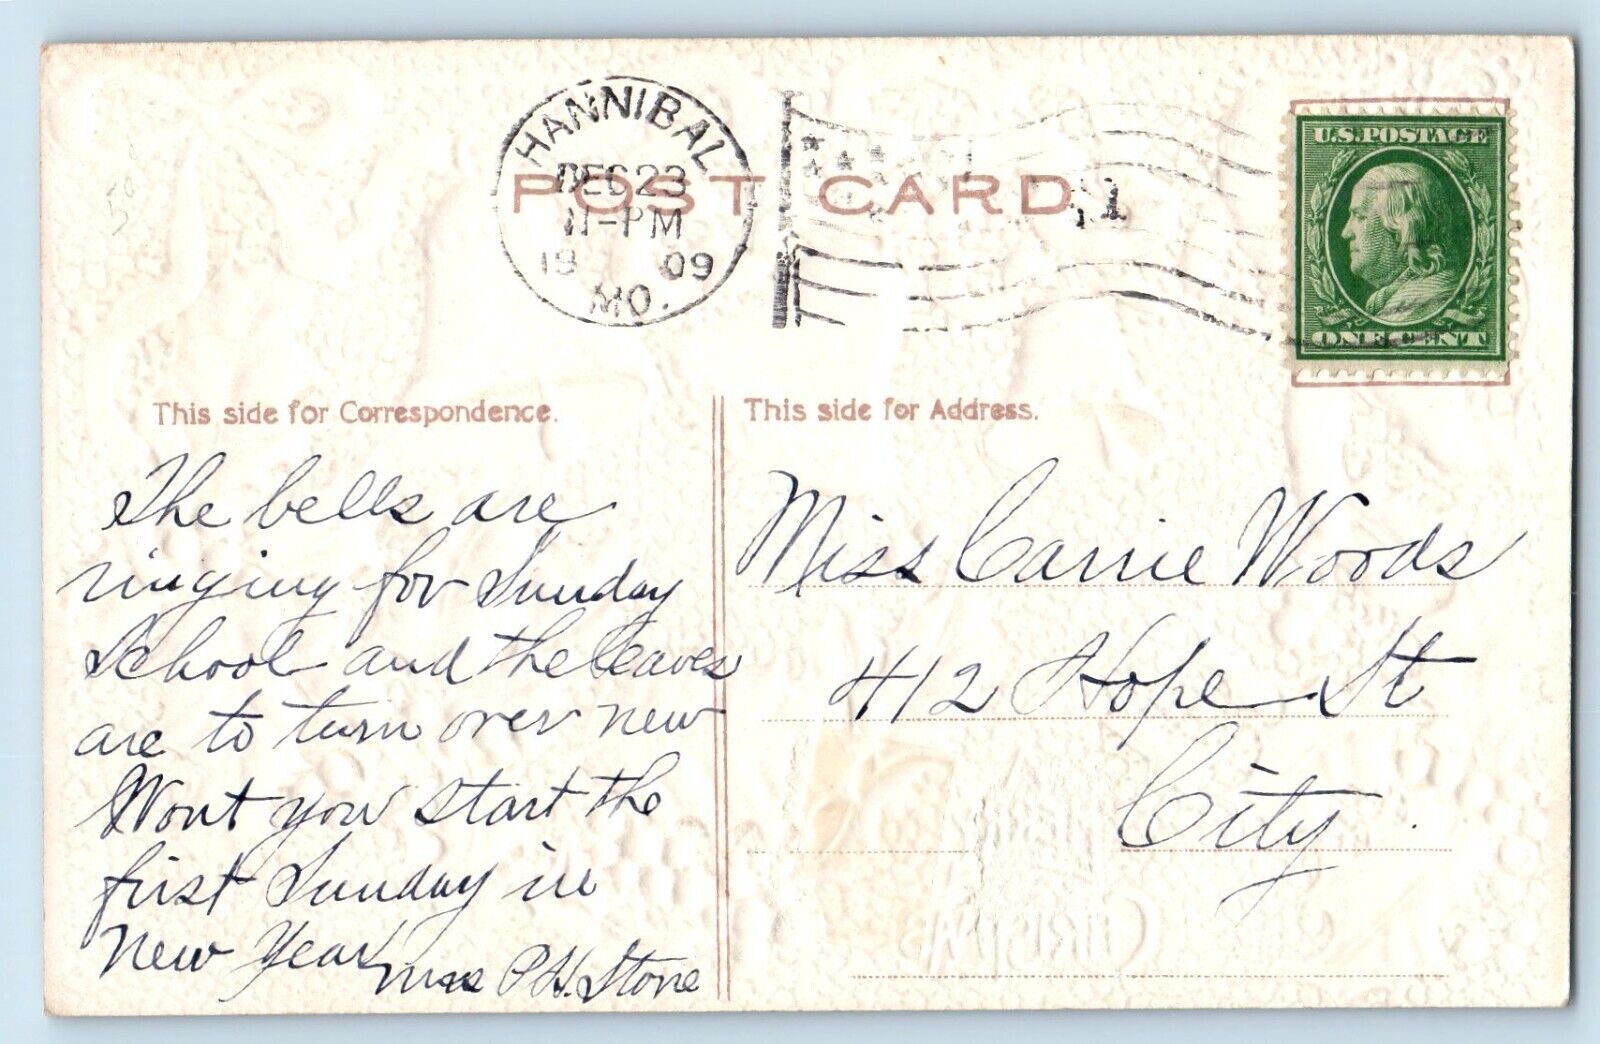 HANNIBAL
DEC 23
11-PM
1909
MO.
1
POST CARD
U.S. POSTAGE
ONE CENT
This side for Correspondence.
This side for Address.
The bells are
ringing for Sunday
School and the leaves
are to turn over new
Wont you start the
first Sunday in
New Year
Mrs P.H. Stone
Miss Carrie Woods
412 Hope St
City.